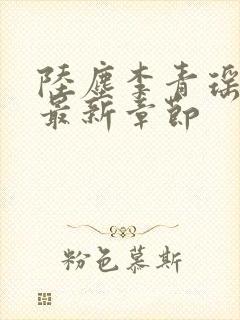 陆尘李青瑶
最新章节
粉色慕斯